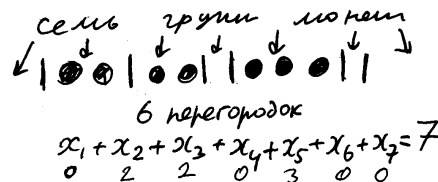 семь групп монет
6 перегородок
x₁ + x₂ + x₃ + x₄ + x₅ + x₆ + x₇ = 7
0 2 2 0 3 0 0